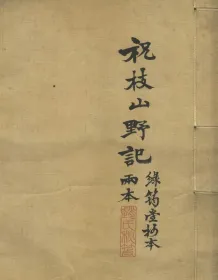 祝枝山野記
兩本
綠筠堂抄本